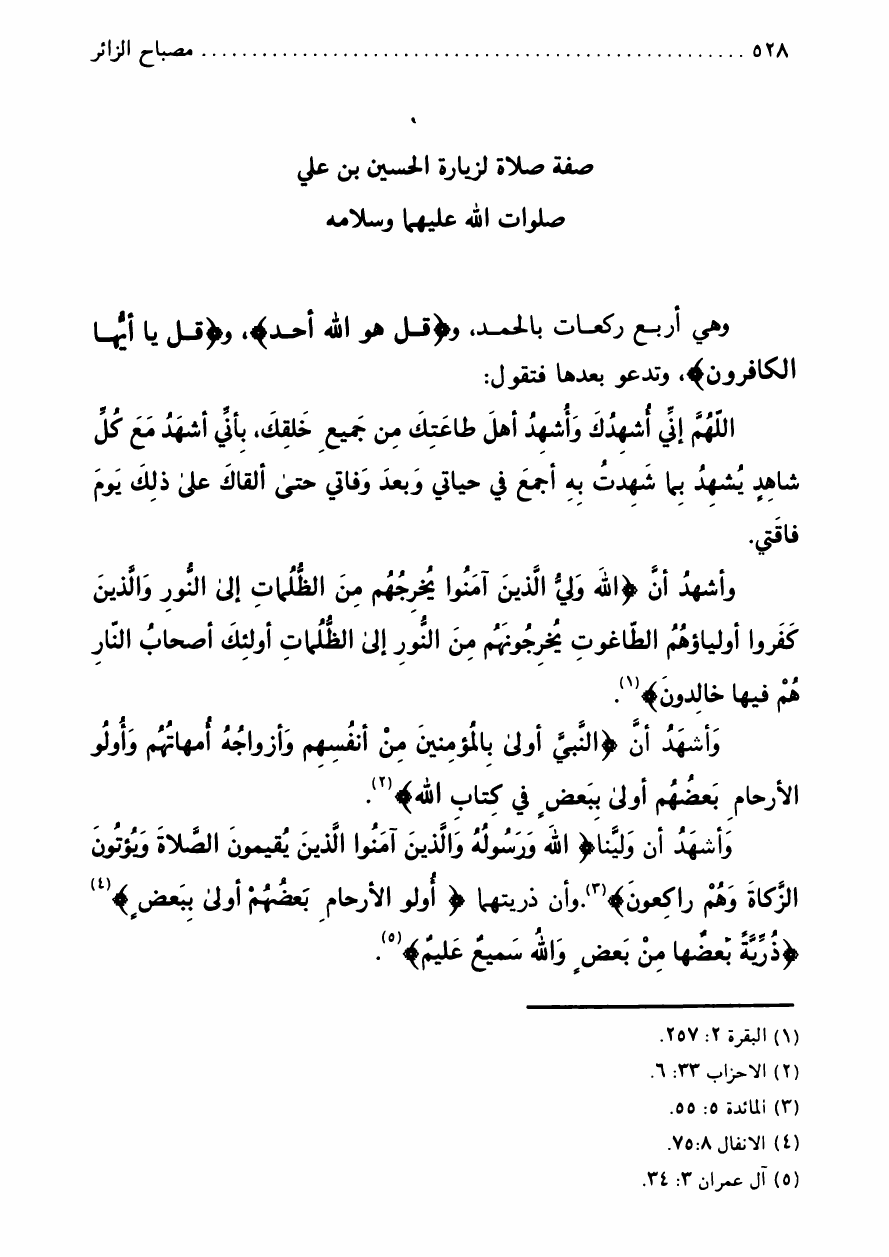 ٥٢٨ ...................................................... مصباح الزائر
صفة صلاة لزيارة الحسين بن علي
صلوات الله عليهما وسلامه
وهي أربـع ركعـات بالحمـد، و﴿قـل هو الله أحـد﴾، و﴿قـل يا أيُّهـا
الكافرون﴾، وتدعو بعدها فتقول:
اللّهُمَّ إنِّي أُشهِدُكَ وَأُشهِدُ أهلَ طاعَتِكَ مِن جَميعِ خَلقِكَ، بِأنِّي أشهَدُ مَعَ كُلِّ
شاهِدٍ يُشهِدُ بِما شَهِدتُ بِهِ أجمَعَ في حياتي وَبعدَ وَفاتي حتىٰ ألقاكَ علىٰ ذلِكَ يَومَ
فاقَتي.
وأشهدُ أنَّ ﴿اللهَ وَليُّ الَّذينَ آمَنُوا يُخرِجُهُم مِنَ الظُّلُماتِ إلىٰ النُّورِ وَالَّذينَ
كَفَروا أولياؤهُمُ الطّاغوت يُخرِجُونَهُم مِنَ النُّورِ إلىٰ الظُّلُماتِ أولئِكَ أصحابُ النّارِ
هُمْ فيها خالِدونَ﴾(١).
وَأشهَدُ أنَّ ﴿النَّبيَّ أولىٰ بِالمُؤمِنينَ مِنْ أنفُسِهِم وَأزواجُهُ أُمهاتُهُم وَأُولُو
الأرحامِ بَعضُهُم أولىٰ بِبَعضٍ في كِتابِ الله﴾(٢).
وَأشهَدُ أن وَليَّنا﴿ اللهُ وَرَسُولُهُ وَالَّذينَ آمَنُوا الَّذينَ يُقيمونَ الصَّلاةَ وَيُؤتُونَ
الزَّكاةَ وَهُمْ راكِعونَ﴾(٣).وأن ذريتهما ﴿ أُولو الأرحامِ بَعضُهُمْ أولىٰ بِبَعضٍ﴾(٤)
﴿ذُرِّيَّةً بَعضُها مِنْ بَعضٍ وَاللهُ سَميعٌ عَليمٌ﴾(٥).
(١) البقرة ٢: ٢٥٧.
(٢) الاحزاب ٣٣: ٦.
(٣) المائدة ٥: ٥٥.
(٤) الانفال ٨:٧٥.
(٥) آل عمران ٣: ٣٤.